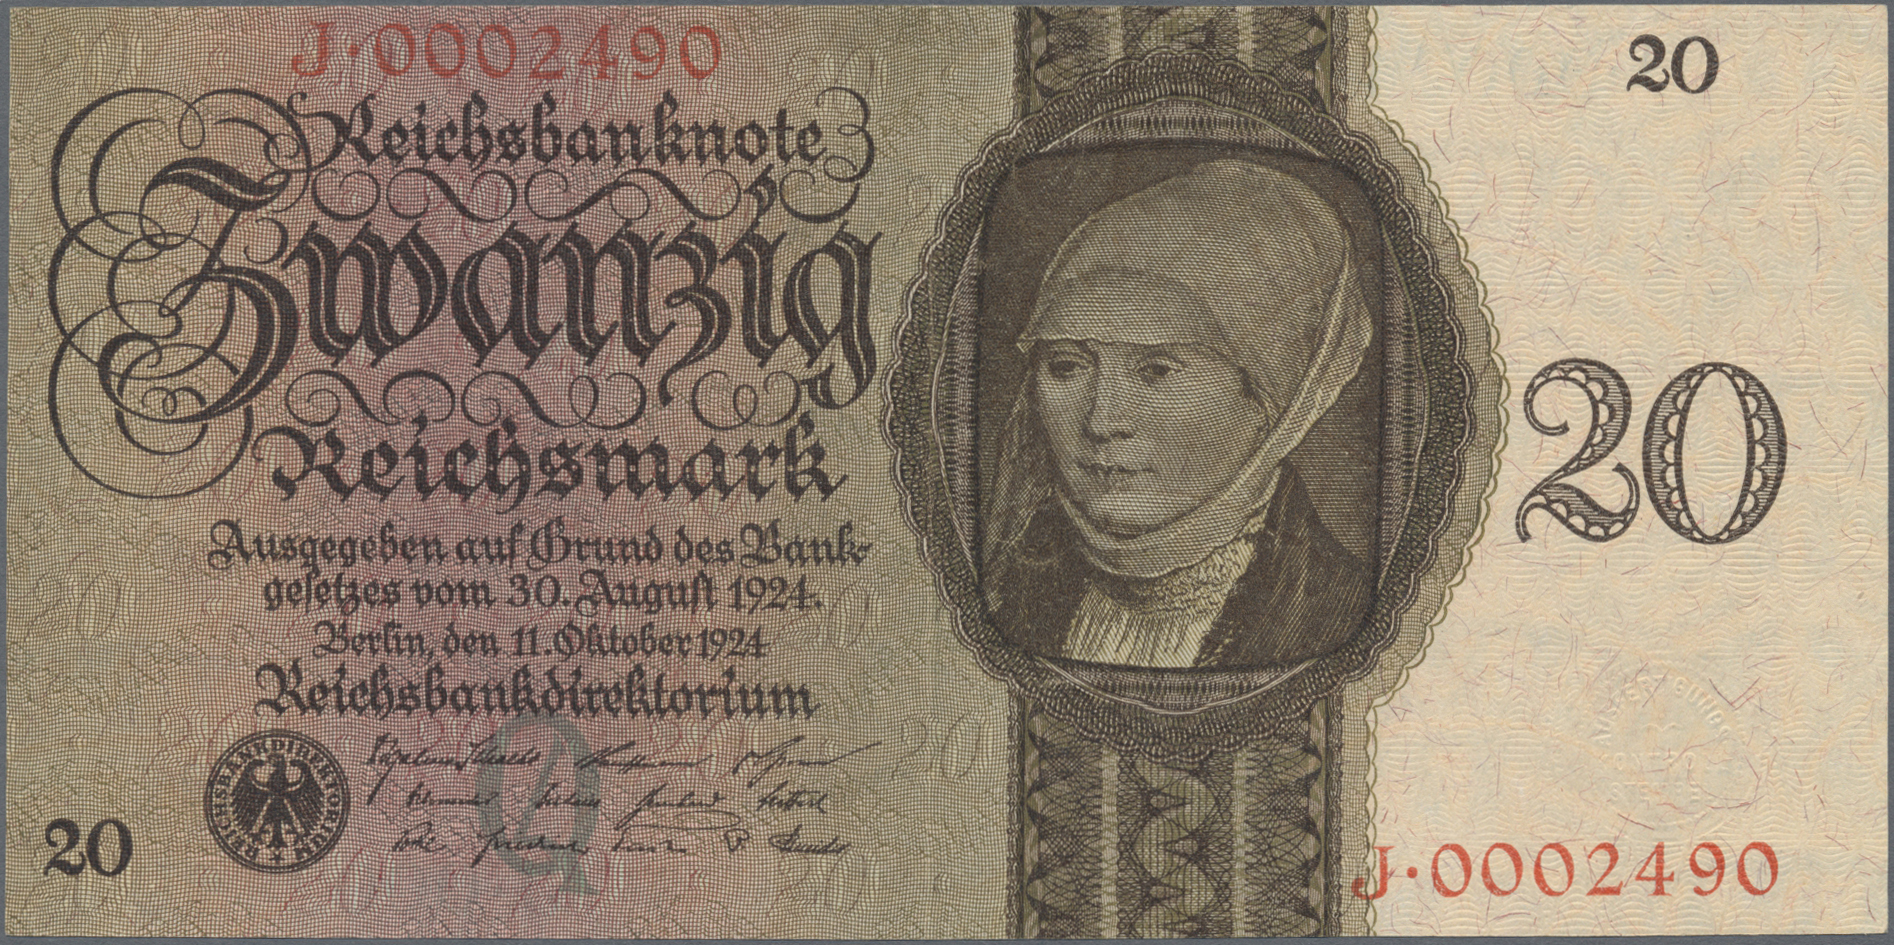 J·0002490
20
Reichsbanknote
Zwanzig
Reichsmark
20
Ausgegeben auf Grund des Bank-
gesetzes vom 30. August 1924.
Berlin, den 11. Oktober 1924
Reichsbankdirektorium
REICHSBANKDIREKTORIUM
Q
20
20
J·0002490